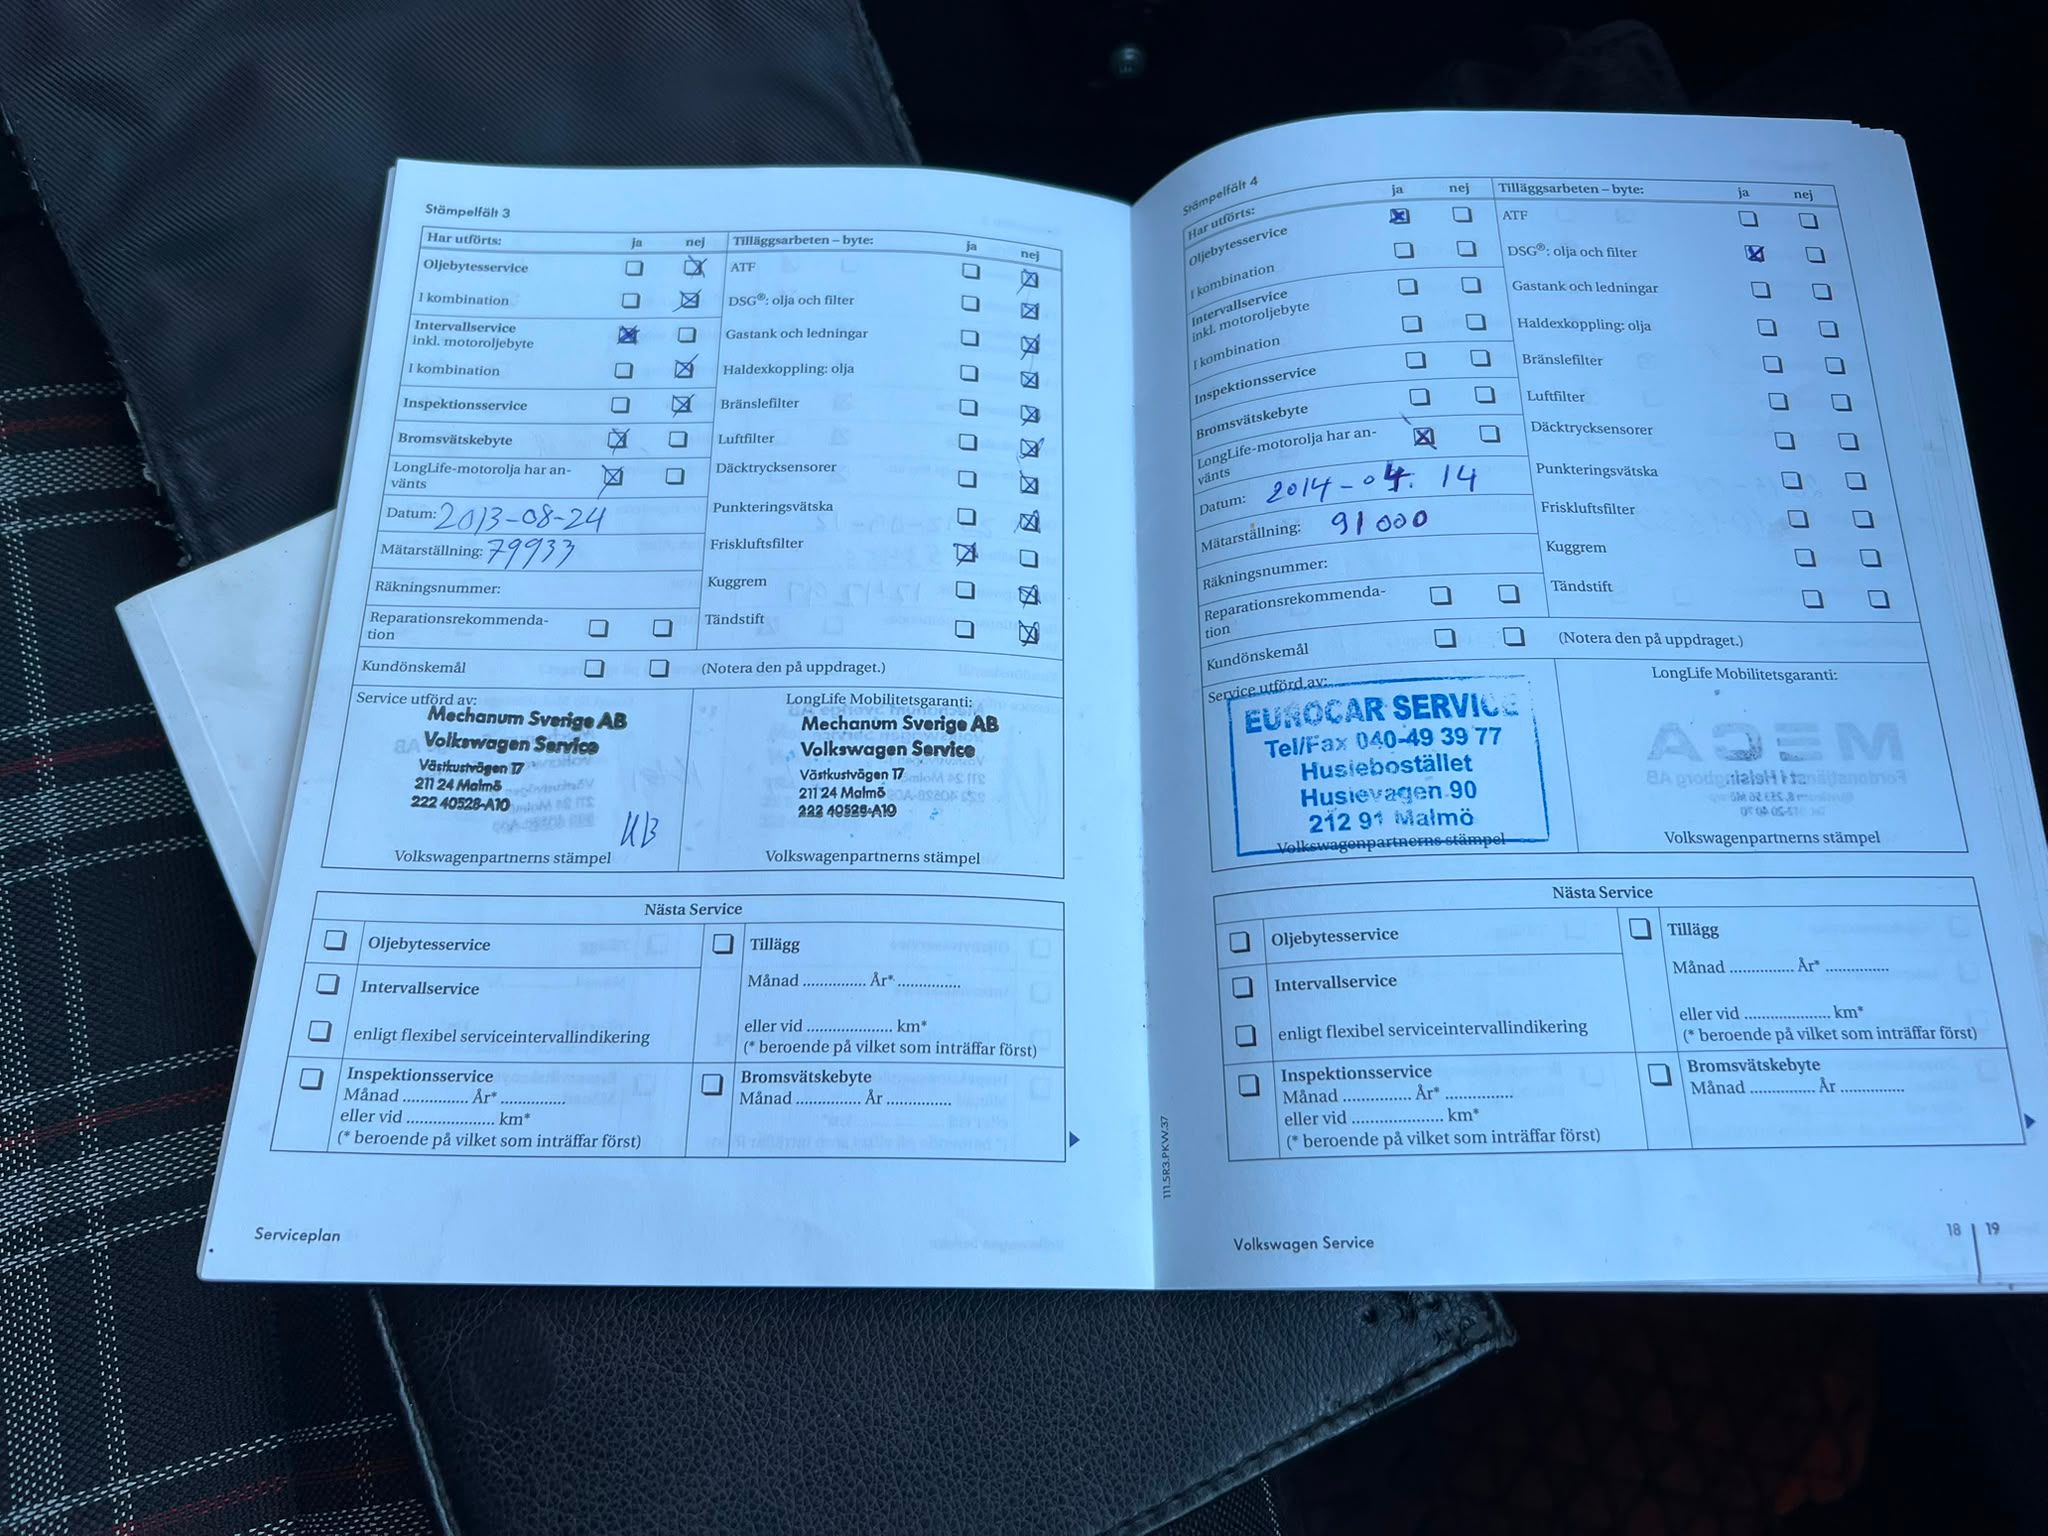 Stämpelfält 3
Har utförts: ja nej
Oljebytesservice
I kombination
Intervallservice
inkl. motoroljebyte
I kombination
Inspektionsservice
Bromsvätskebyte
LongLife-motorolja har an-
vänts
Datum: 2013-08-24
Mätarställning: 79933
Räkningsnummer:
Reparationsrekommenda-
tion
Kundönskemål
(Notera den på uppdraget.)
Tilläggsarbeten – byte: ja nej
ATF
DSG®: olja och filter
Gastank och ledningar
Haldexkoppling: olja
Bränslefilter
Luftfilter
Däcktrycksensorer
Punkteringsvätska
Friskluftsfilter
Kuggrem
Tändstift
Service utförd av:
Mechanum Sverige AB
Volkswagen Service
Västkustvägen 17
211 24 Malmö
222 40528-A10
Volkswagenpartnerns stämpel
LongLife Mobilitetsgaranti:
Mechanum Sverige AB
Volkswagen Service
Västkustvägen 17
211 24 Malmö
222 40528-A10
Volkswagenpartnerns stämpel
Nästa Service
Oljebytesservice
Intervallservice
enligt flexibel serviceintervallindikering
Inspektionsservice
Månad ............... År* ...............
eller vid .................... km*
(* beroende på vilket som inträffar först)
Tillägg
Månad ............... År* ...............
eller vid .................... km*
(* beroende på vilket som inträffar först)
Bromsvätskebyte
Månad ............... År ...............
Serviceplan
Stämpelfält 4
Har utförts: ja nej
Oljebytesservice
I kombination
Intervallservice
inkl. motoroljebyte
I kombination
Inspektionsservice
Bromsvätskebyte
LongLife-motorolja har an-
vänts
Datum: 2014-04. 14
Mätarställning: 91000
Räkningsnummer:
Reparationsrekommenda-
tion
Kundönskemål
(Notera den på uppdraget.)
Tilläggsarbeten – byte: ja nej
ATF
DSG®: olja och filter
Gastank och ledningar
Haldexkoppling: olja
Bränslefilter
Luftfilter
Däcktrycksensorer
Punkteringsvätska
Friskluftsfilter
Kuggrem
Tändstift
Service utförd av:
EUROCAR SERVICE
Tel/Fax 040-49 39 77
Husiebostället
Husievägen 90
212 91 Malmö
Volkswagenpartnerns stämpel
LongLife Mobilitetsgaranti:
Volkswagenpartnerns stämpel
Nästa Service
Oljebytesservice
Intervallservice
enligt flexibel serviceintervallindikering
Inspektionsservice
Månad ............... År* ...............
eller vid .................... km*
(* beroende på vilket som inträffar först)
Tillägg
Månad ............... År* ...............
eller vid .................... km*
(* beroende på vilket som inträffar först)
Bromsvätskebyte
Månad ............... År ...............
111.5R3.PKW.37
Volkswagen Service
18 | 19